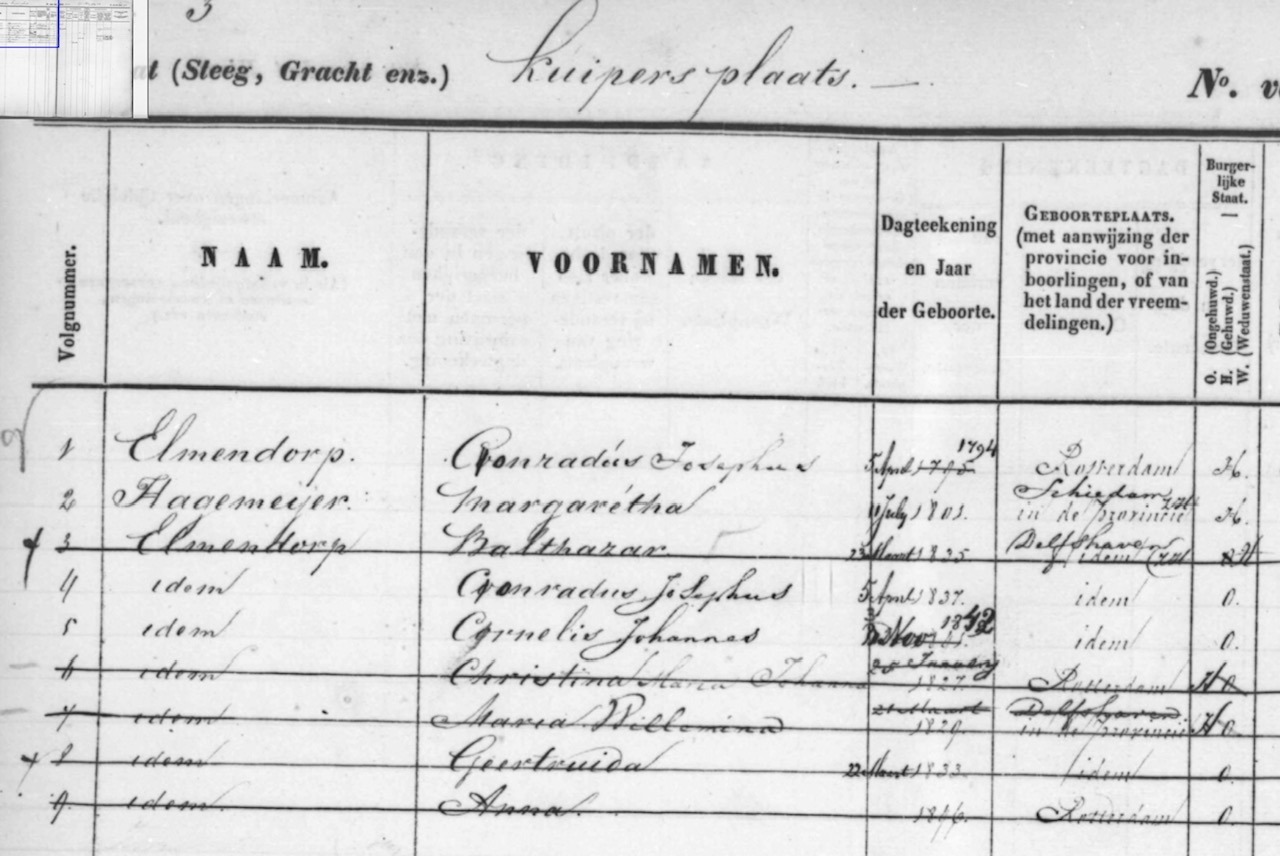 3
at (Steeg, Gracht enz.) Kuipersplaats. — No. v
Volgnummer.
NAAM.
VOORNAMEN.
Dagteekening
en Jaar
der Geboorte.
GEBOORTEPLAATS.
(met aanwijzing der
provincie voor in-
boorlingen, of van
het land der vreem-
delingen.)
Burger-
lijke
Staat.
O. (Ongehuwd.)
H. (Gehuwd.)
W. (Weduwenstaat.)
1 Elmendorp. Conradus Josephus 5 April 1795 1794 Rotterdam H.
2 Hagemeijer. Margaretha 11 July 1801. Schiedam in de provincie H.
3 Elmendorp Balthazar 23 Maart 1835 Delfshaven idem
4 idem Conradus Josephus 5 April 1837. idem O.
5 idem Cornelis Johannes Nov 1842 idem O.
6 idem Christina Maria Johanna 25 January 1827. Rotterdam H O.
7 idem Maria Willemina Maart 1829. Delfshaven in de provincie H O.
8 idem Geertruida 22 Maart 1833. idem O.
9. idem. Anna. Rotterdam O.